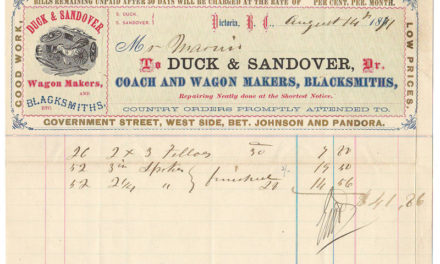 BILLS REMAINING UNPAID AFTER 30 DAYS WILL BE CHARGED AT THE RATE OF PER CENT. PER. MONTH.
S. DUCK.
S. SANDOVER.
Victoria, B. C., August 14th 1871
Mr
To DUCK & SANDOVER, Dr.
COACH AND WAGON MAKERS, BLACKSMITHS,
Repairing Neatly done at the Shortest Notice.
COUNTRY ORDERS PROMPTLY ATTENDED TO.
GOVERNMENT STREET, WEST SIDE, BET. JOHNSON AND PANDORA.
GOOD WORK,
DUCK & SANDOVER,
Wagon Makers,
AND
BLACKSMITHS,
ETC.
LOW PRICES.
26 2 x 3 Felloes 30 7 80
52 3 in Spokes
52 2 1/4 " finished 28 14 56
$41.86